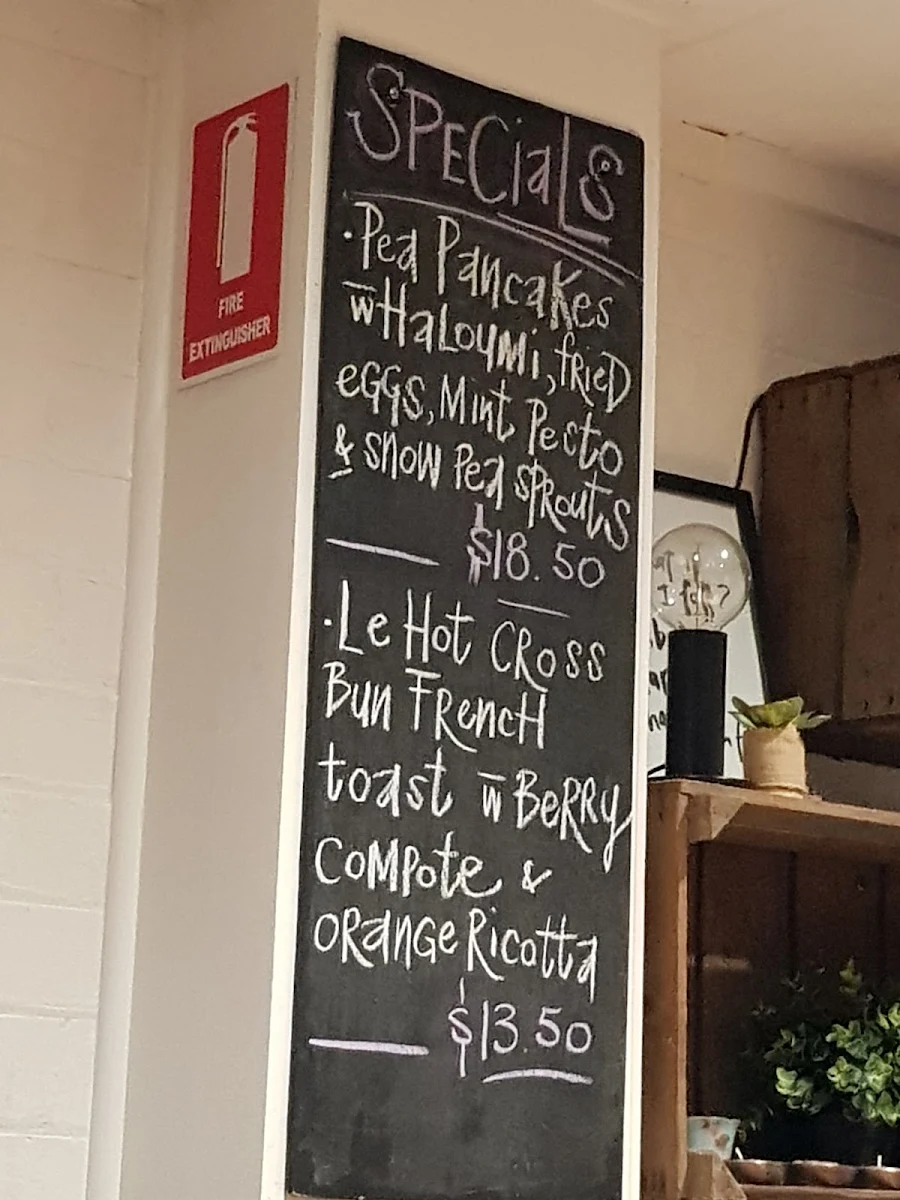 FIRE
EXTINGUISHER
SPECiaLS
·Pea Pancakes
w̅ HaLoUMi, fRieD
eGGS, Mint Pesto
& snow Pea SPRoutS
$18.50
·Le Hot CRoss
Bun FRencH
toast w̅ BeRRy
CoMPote &
oRanGe Ricotta
$13.50
I fall?